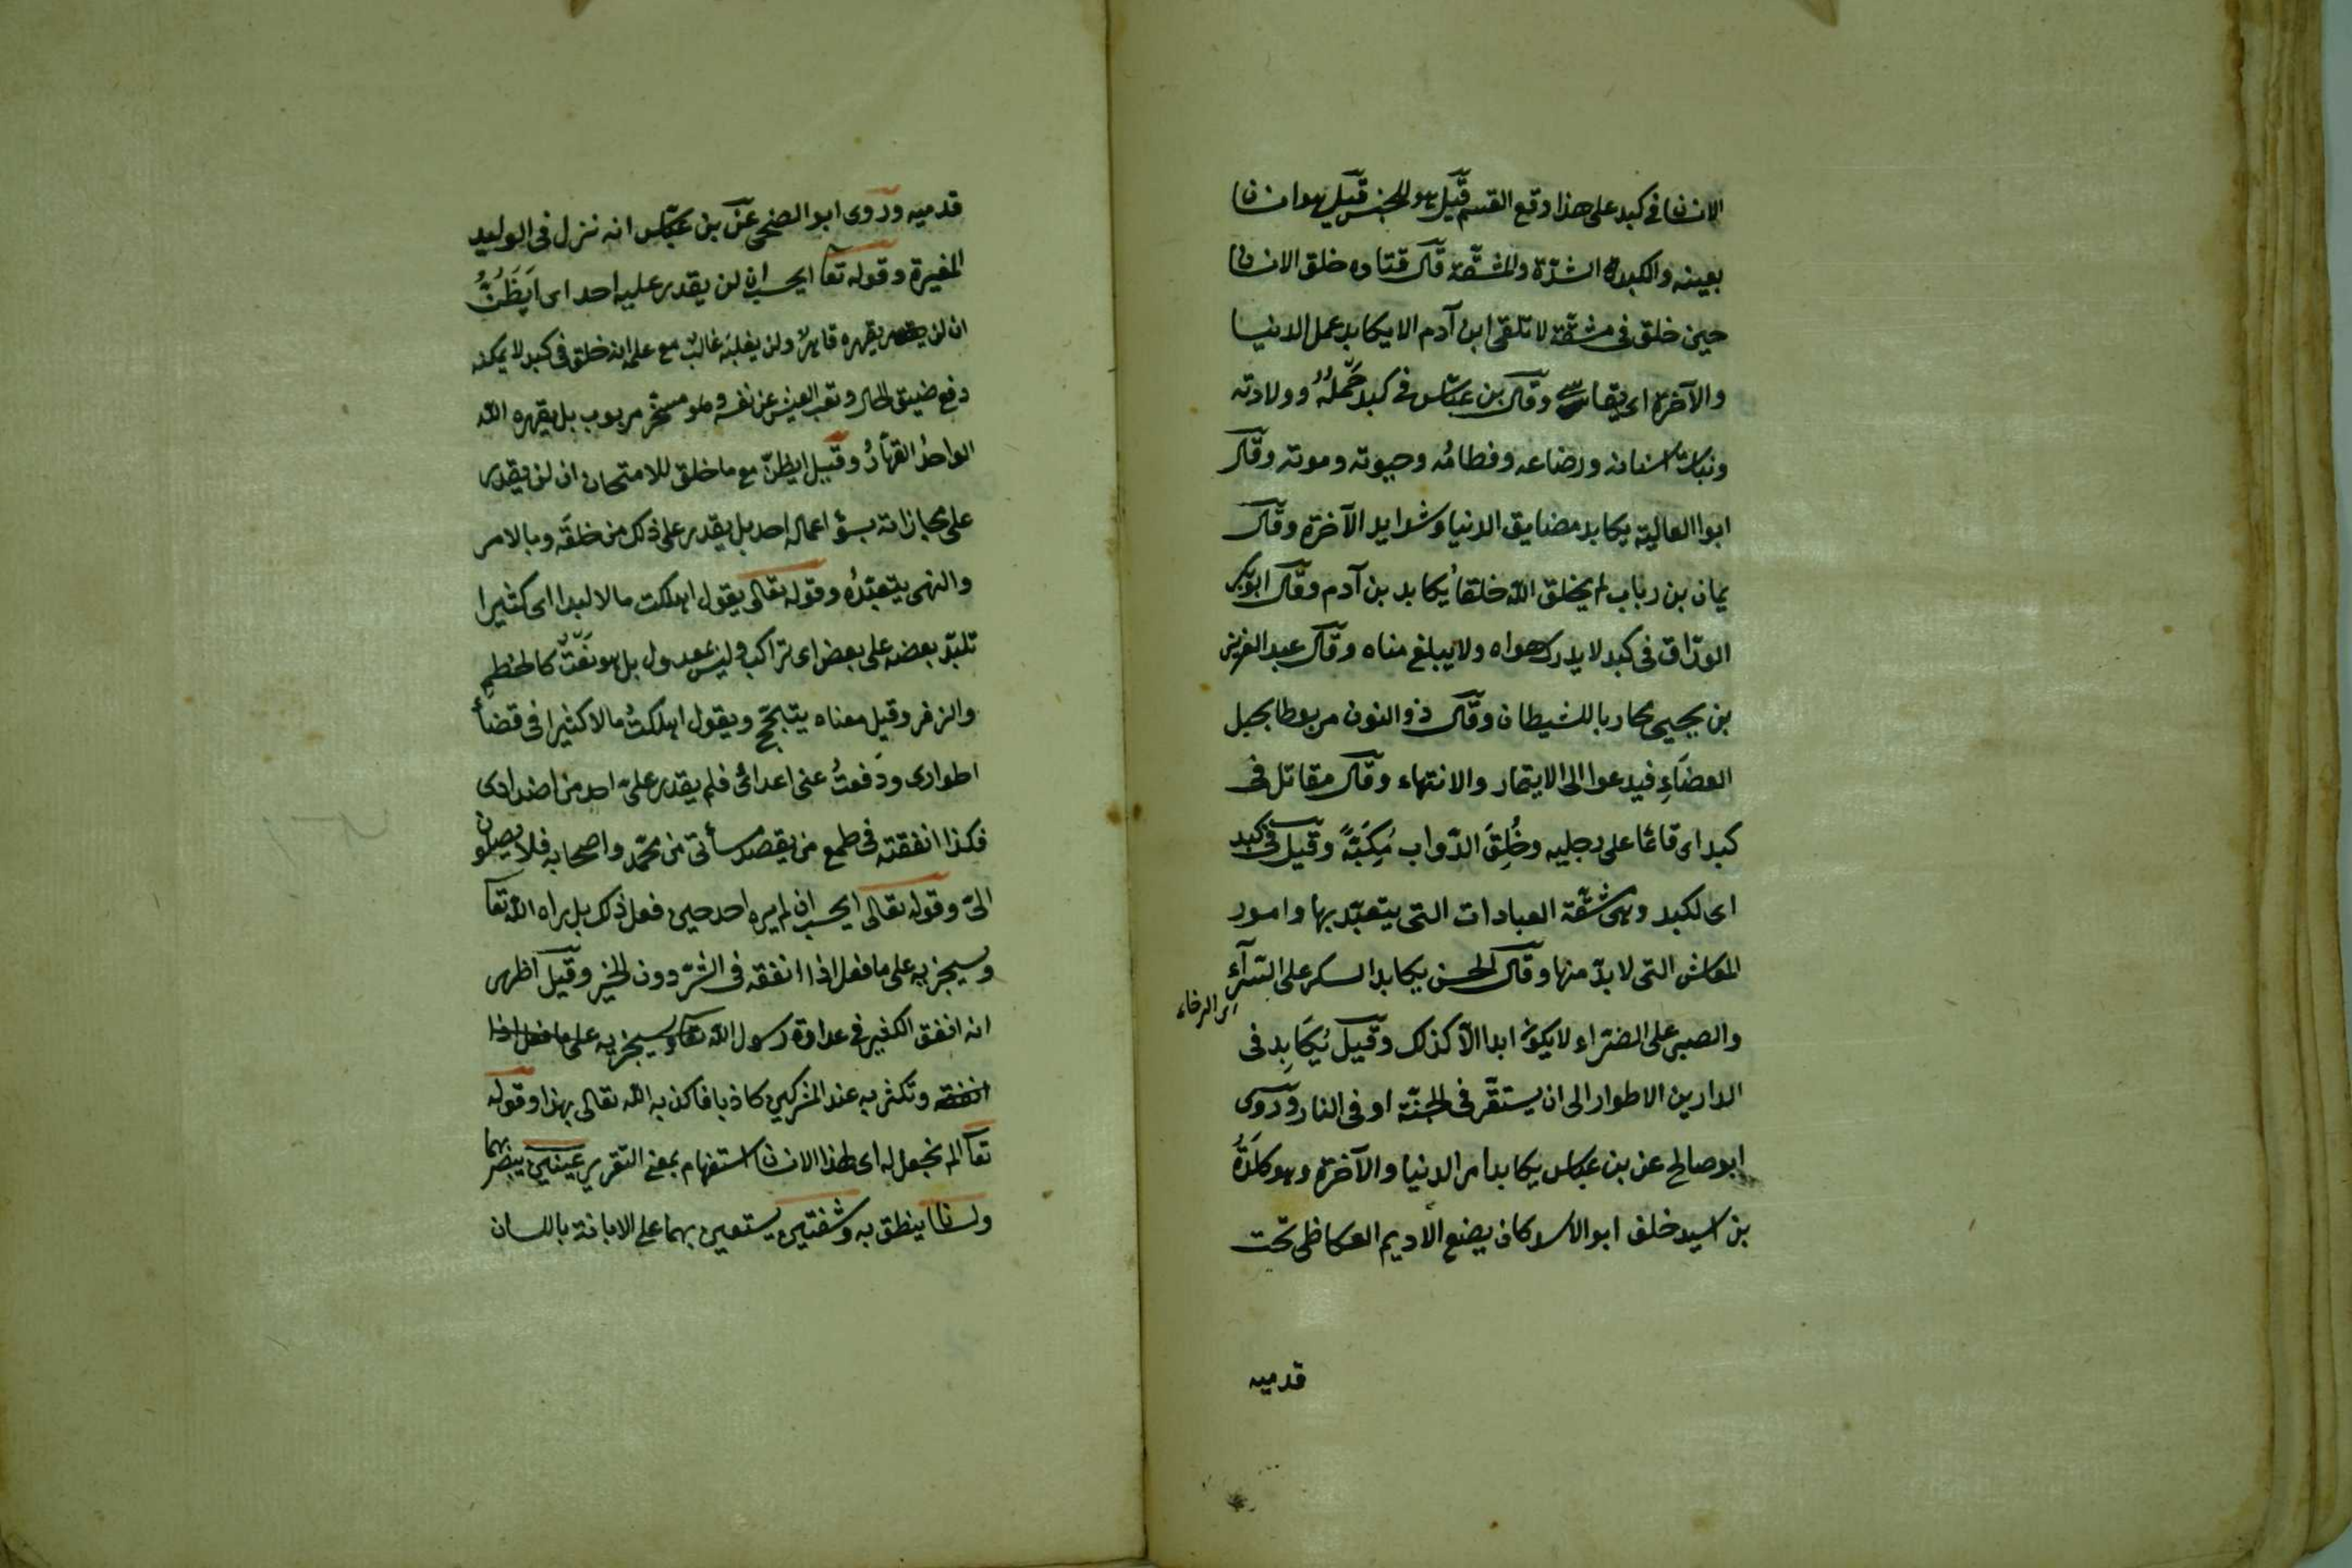 الانسان فى كبد على هذا وقع القسم قيل هو الجنس قيل هو انسان
بعينه والكبد الشدّة والمشقّة قال قتاده خلق الانسان
حين خلق فى مشقّة لا تلقى ابن آدم الا يكابد عمل الدنيا
والآخرة اى يقاسى وقال بن عبّاس فى كبد حَملُهُ وولادته
ونبات اسنانه ورضاعه وفطامُه وحيوته وموته وقال
ابوا العالية يكابد مضايق الدنيا وشدايد الآخرة وقال
يمان بن رباب لم يخلق الله خلقاً يكابد بن آدم وقال ابوبكر
الورّاق فى كبد لا يدرك هواه ولا يبلغ مناه وقال عبد العزيز
بن يحيى محاربا للشيطان وقال ذو النون مربوطا بحبل
القضاءِ فيدعوا الى الايتمار والانتهاء وقال مقاتل فى
كبد اى قائما على رجليه وخُلِقَ الدّواب مُكِبَّةً وقيل فى كبد
اى لكبد وهى مشقّة العبادات التى يتعبّد بها وامور
المعاش التى لا بدّ منها وقال الحسن يكابد السكر على السّرآءِ
اى الرخاء
والصبر على الضرّاء لا يكون ابدا الّا كذلك وقيل يُكَابِد فى
الدارين الاطوار الى ان يستقرّ فى الجنّة او فى النار وروى
ابو صالح عن بن عباس يكابد امر الدنيا والآخرة وهو كَلَدَةُ
بن اسيد خلف ابو الاسد كان يضع الاديم العكاظى تحت
قدميه
قدميه وروى ابو الضحى عن بن عبّاس انه نزل فى الوليد
المغيرة وقوله تعا ايحسب ان لن يقدر عليه احد اى اَيَظُنُّ
ان لن يقهره قاهرٌ ولن يغلبَه غالبٌ مع علمه انه خلق فى كبد لا يمكنه
دفع ضيق الحال وتعب العيش عن نفسه وهو مسخّر مربوب بل يقهره الله
الواحدُ القهّارُ وقيل ايظنّ مع ما خلق للامتحان ان لن يقدر
على مجازاته بسؤ اعماله احد بل يقدر على ذلك من خلَقَه وبالامر
والنهى يتعبّدُه وقوله تعالى يقول اهلكت مالا لبدا اى كثيرا
تلبّد بعضه على بعض اى تراكب وليس بمعدول بل هو نَعْتٌ كالحطم
والزفر وقيل معناه يتبجّح ويقول اهلكتُ مالا كثيرا فى قضاء
اطوارى ودَفعتُ عنى اعدائى فلم يقدر علىّ احد من اضدادى
فكذا انفقته فى طمع من يقصد مسأتى من محمّد واصحابه فلا يصلون
الىّ وقوله تعالى ايحسب ان لم يره احد حين فعل ذلك بل يراه الله تعا
وسيجزيه على ما فعل اذا انفقه فى الشرّ دون الخير وقيل اظهر
انه انفق الكثير فى عداوة رسول الله تعا وسيجزيه على ما فعل اذا
انفقه وتكثّر به عند المشركين كاذبا فاكذبه الله تعالى بهذا وقوله
تعا الم نجعل له اى لهذا الانسان استفهام بمعنى التقرير عينين يبصر بهما
ولسانا ينطق به وشفتين يستعين بهما على الابانة باللسان